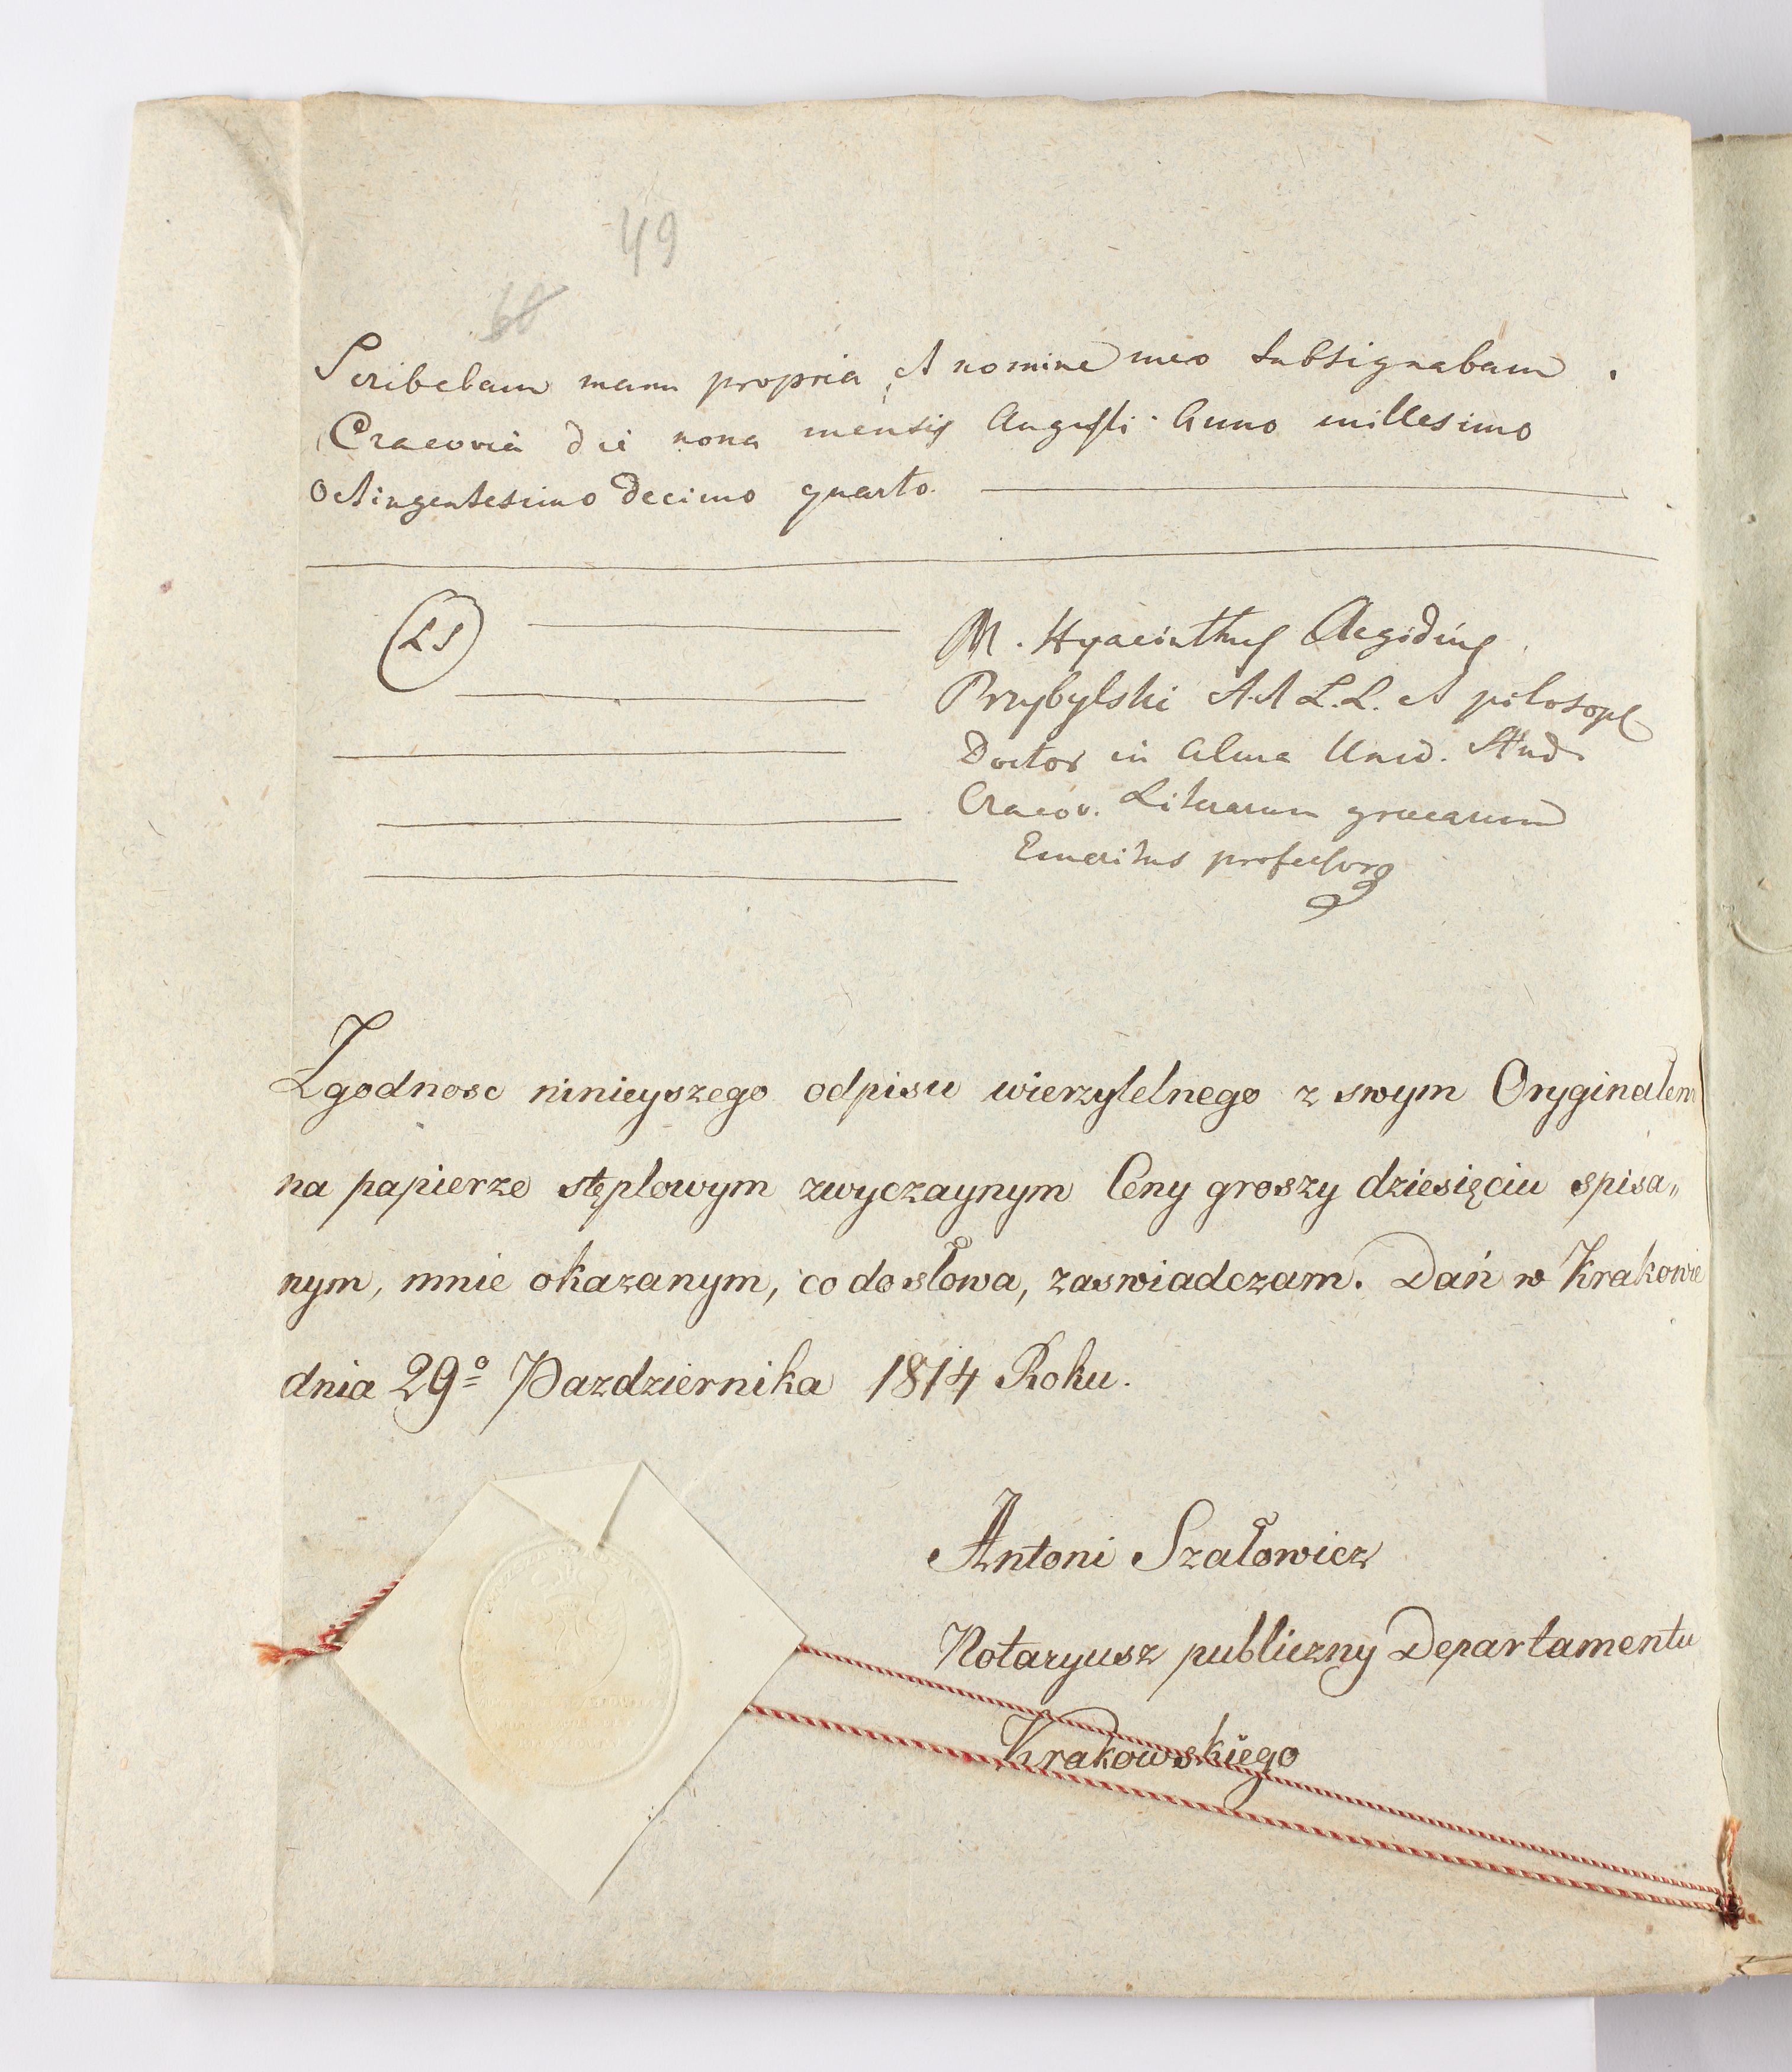 49
68
Scribebam manu propria et nomine meo subsignabam.
Cracoviæ die nona mensis Augusti Anno millesimo
octingentesimo decimo quarto.
LS
M. Hyacinthus Aegidius
Przybylski AA L.L. et pilosop
Doctor in alma Univ. Stud.
Cracov. Literarum græcarum
Emeritus professor
Zgodnosc ninieyszego odpisu wierzytelnego z swym Oryginałem
na papierze stęplowym zwyczaynym Ceny groszy dziesięciu spisa„
nym, mnie okazanym, co do słowa, zaswiadczam. Dań w Krakowie
dnia 29º Pazdziernika 1814 Roku.
Antoni Szałowicz
Notaryusz publiczny Departamentu
Krakowskiego